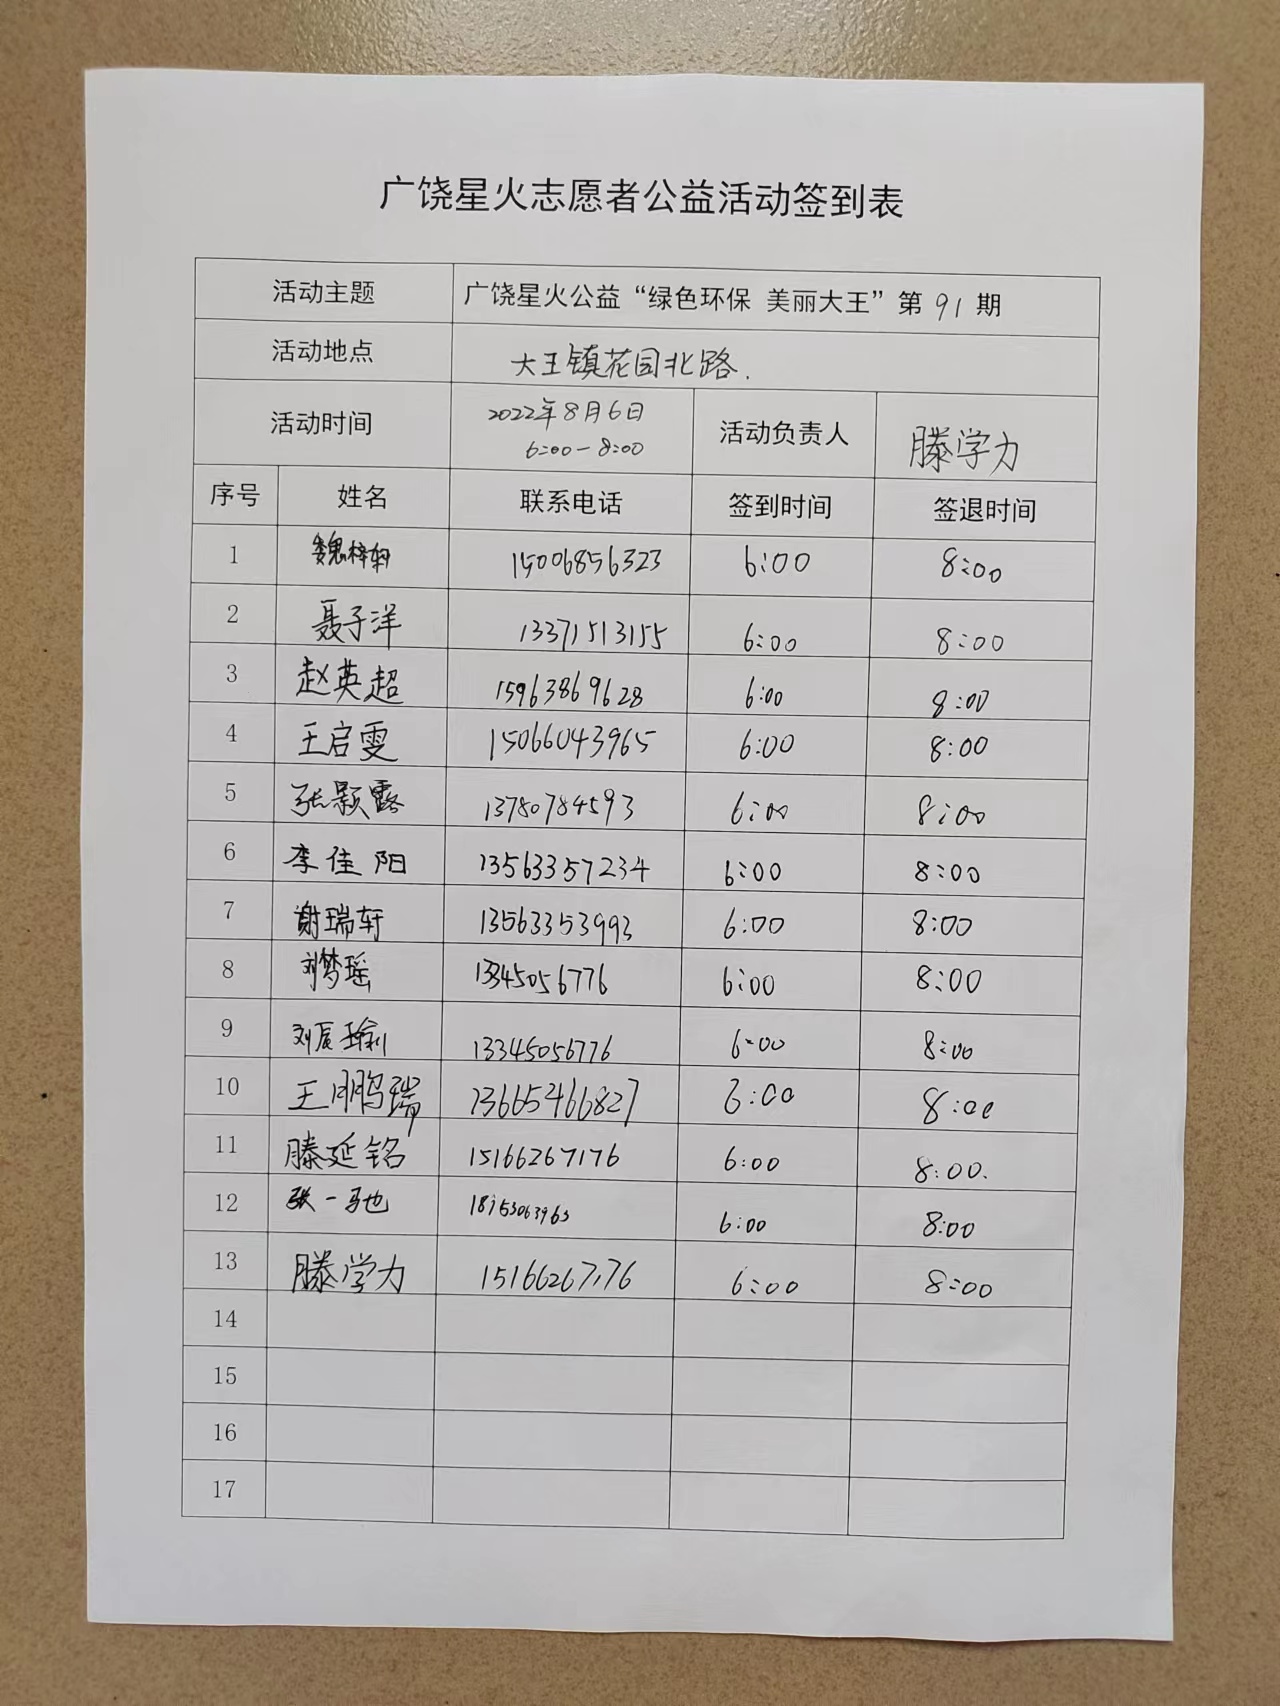 广饶星火志愿者公益活动签到表
活动主题 广饶星火公益“绿色环保 美丽大王”第 91 期
活动地点 大王镇花园北路.
活动时间 2022年8月6日 6:00-8:00 活动负责人 滕学力
序号 姓名 联系电话 签到时间 签退时间
1 魏梓轩 15006856323 6:00 8:00
2 聂子洋 13371513155 6:00 8:00
3 赵英超 15963869628 6:00 8:00
4 王启雯 15066043965 6:00 8:00
5 张颢露 13780784593 6:00 8:00
6 李佳阳 13563357234 6:00 8:00
7 谢瑞轩 13563353993 6:00 8:00
8 刘梦瑶 13345056776 6:00 8:00
9 刘辰瑜 13345056776 6:00 8:00
10 王鹏瑞 13665466827 6:00 8:00
11 滕延铭 15166267176 6:00 8:00.
12 张一驰 6:00 8:00
13 滕学力 15166267176 6:00 8:00
14
15
16
17